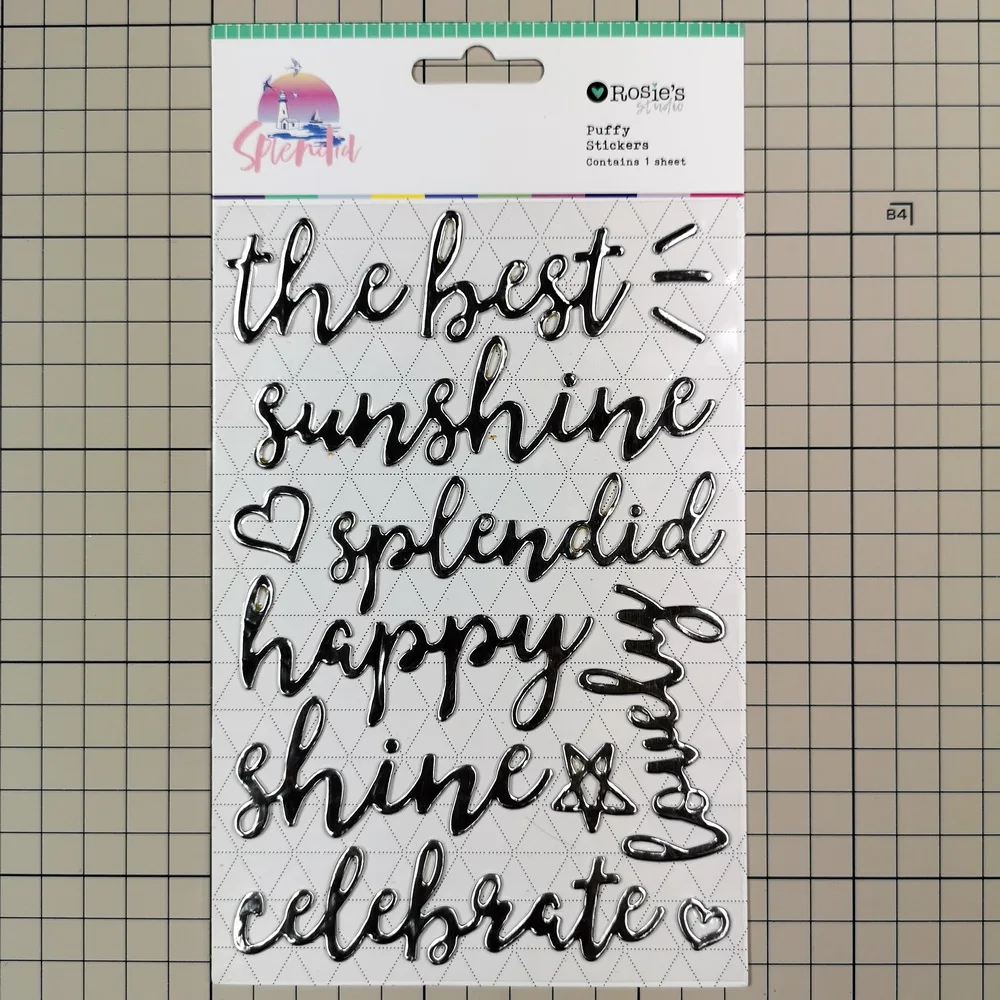 Splendid
Rosie's
studio
Puffy
Stickers
Contains 1 sheet
B4
the best
sunshine
splendid
happy
lovely
shine
celebrate